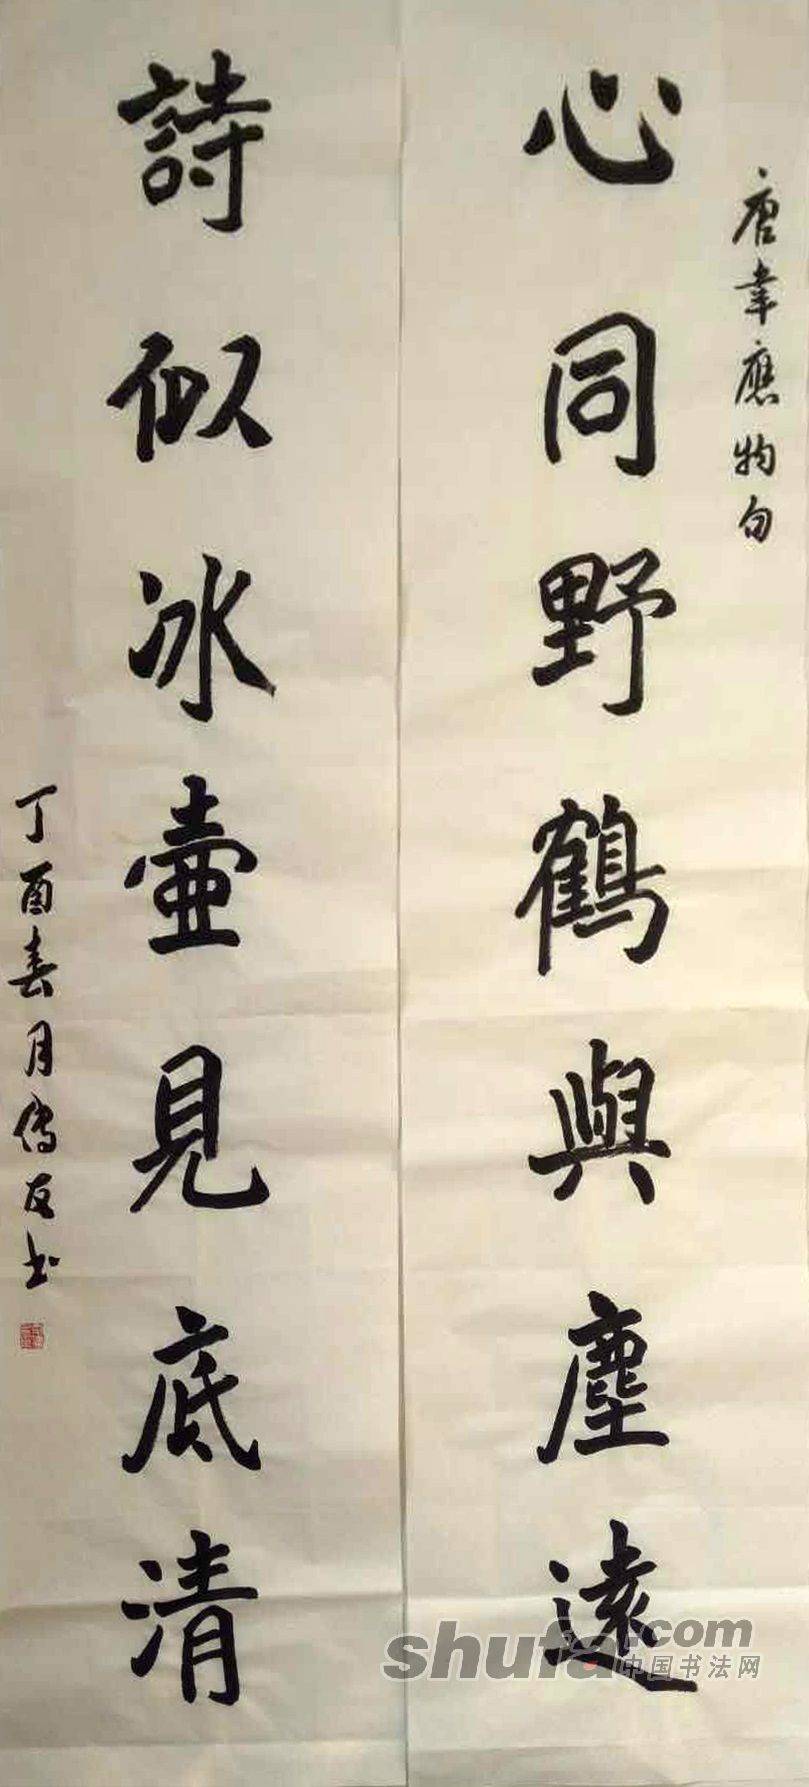 唐韋應物句
心同野鶴與塵遠
詩似冰壺見底清
丁酉春月傳友书
shufa.com
中国书法网